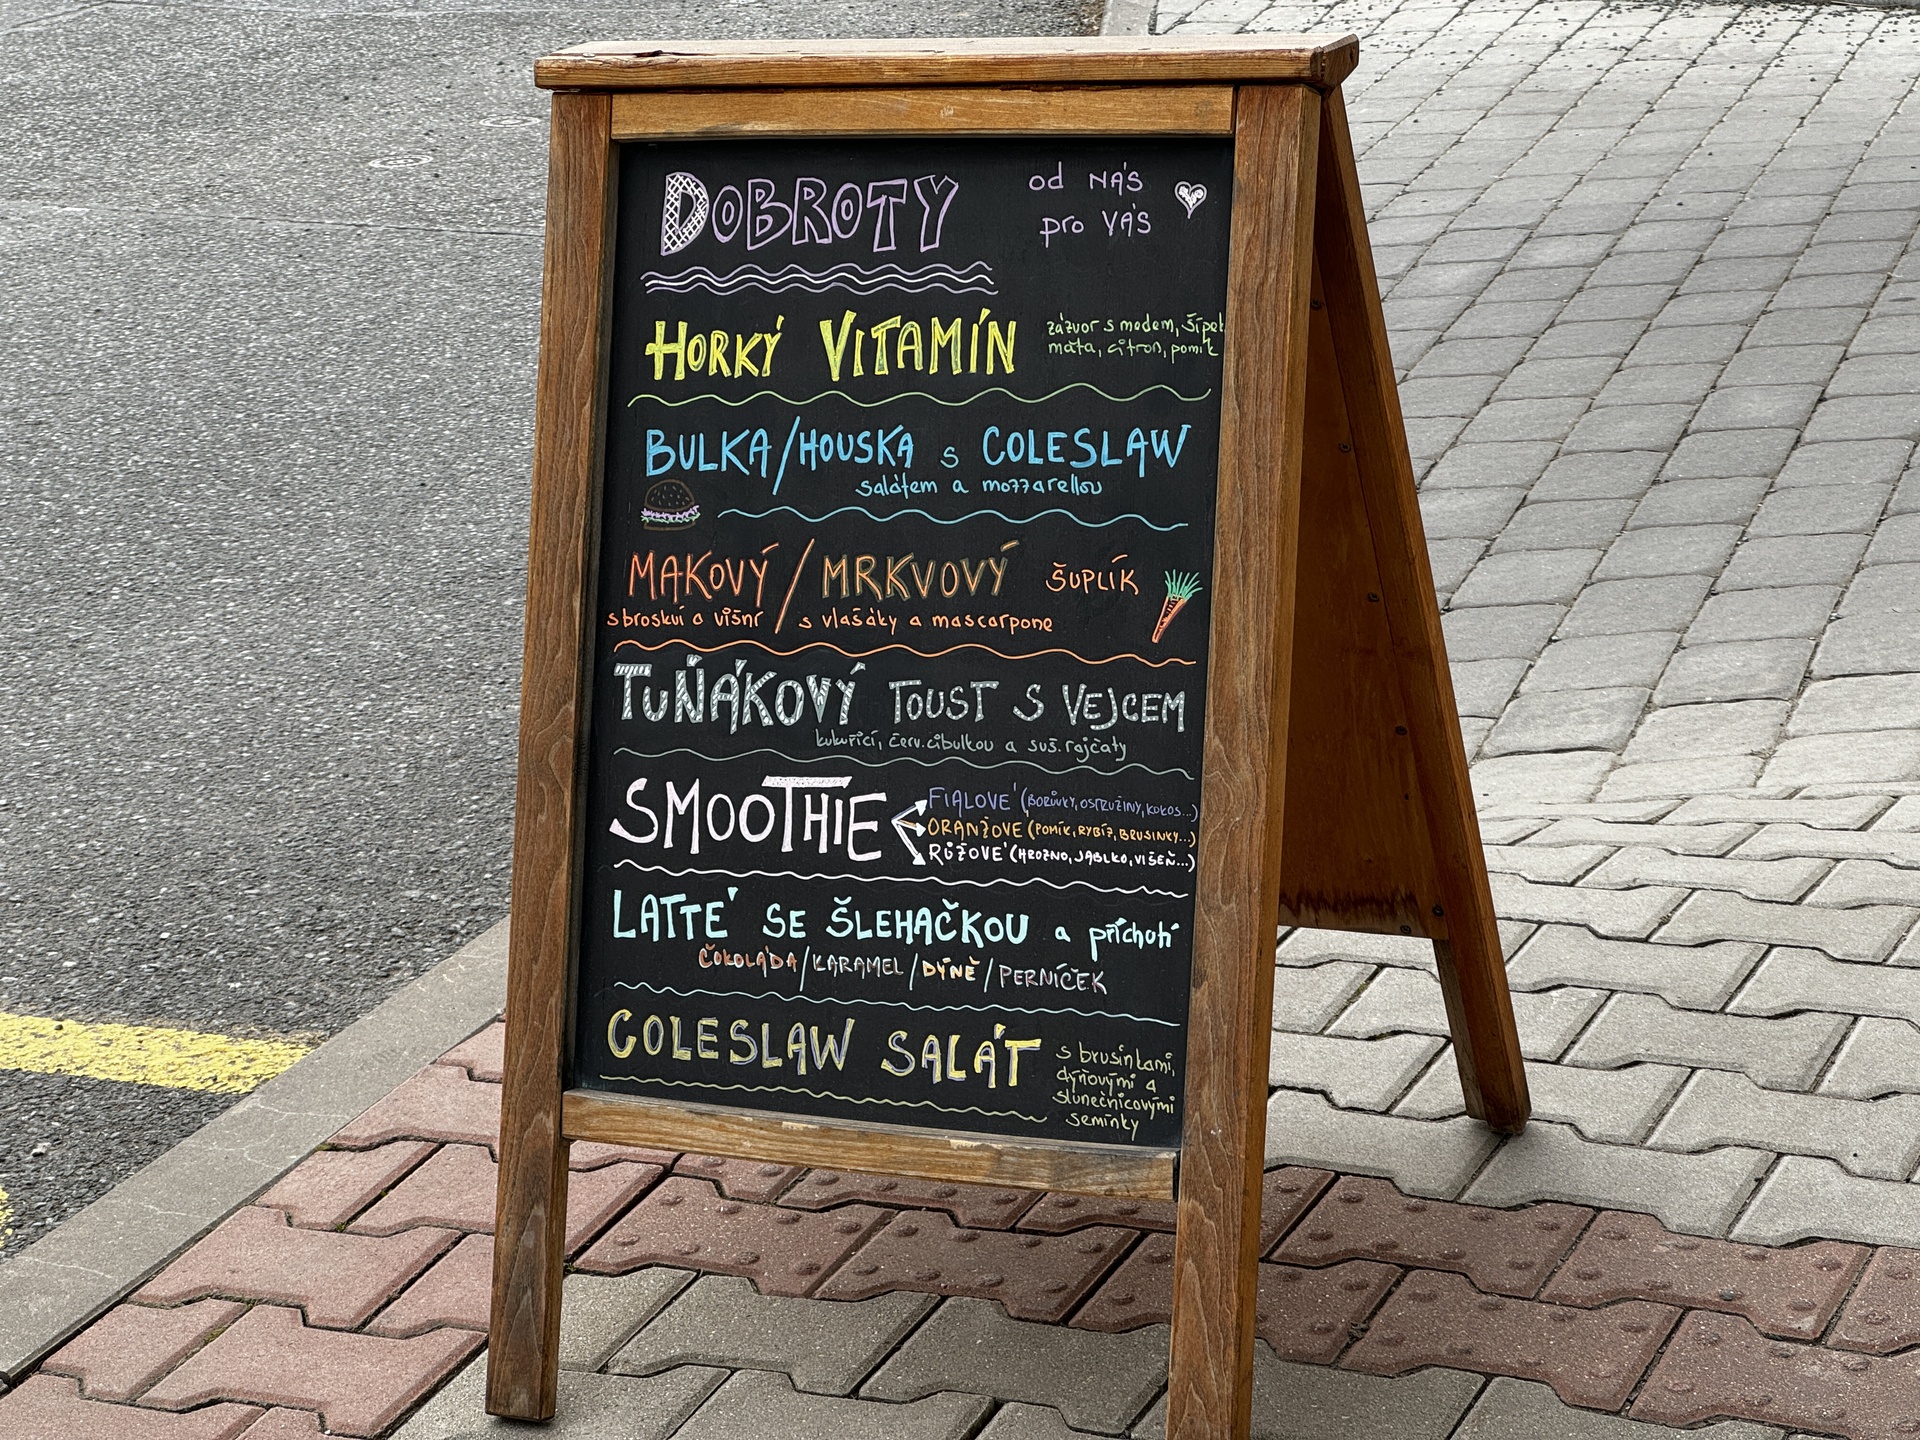 DOBROTY
od NÁS
pro VÁS
HORKÝ VITAMÍN
zázvor s medem, šípek
máta, citron, pomík
BULKA/HOUSKA s COLESLAW
salátem a mozzarellou
MAKOVÝ / MRKVOVÝ ŠUPLÍK
s broskví a višní / s vlašáky a mascarpone
TUŇÁKOVÝ TOUST S VEJCEM
kukuřicí, červ. cibulkou a suš. rajčaty
SMOOTHIE
FIALOVÉ (BORŮVKY, OSTRUŽINY, KOKOS...)
ORANŽOVÉ (POMÍK, RYBÍZ, BRUSINKY...)
RŮŽOVÉ (HROZNO, JABLKO, VIŠEŇ...)
LATTÉ SE ŠLEHAČKOU a příchutí
ČOKOLÁDA/KARAMEL/DÝNĚ/PERNÍČEK
COLESLAW SALÁT
s brusinkami,
dýňovými a
slunečnicovými
semínky